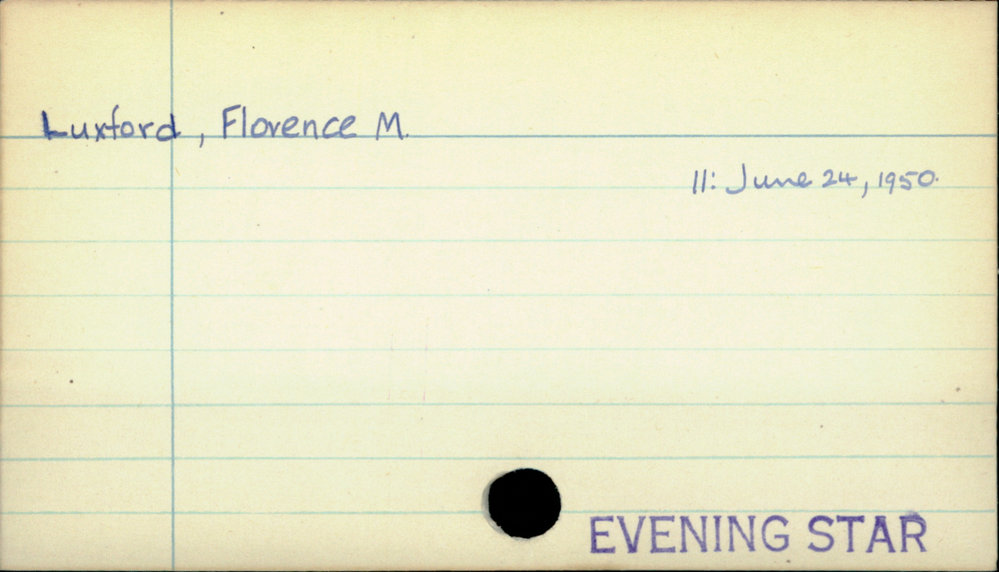 Luxford, Florence M.
11: June 24, 1950.
EVENING STAR